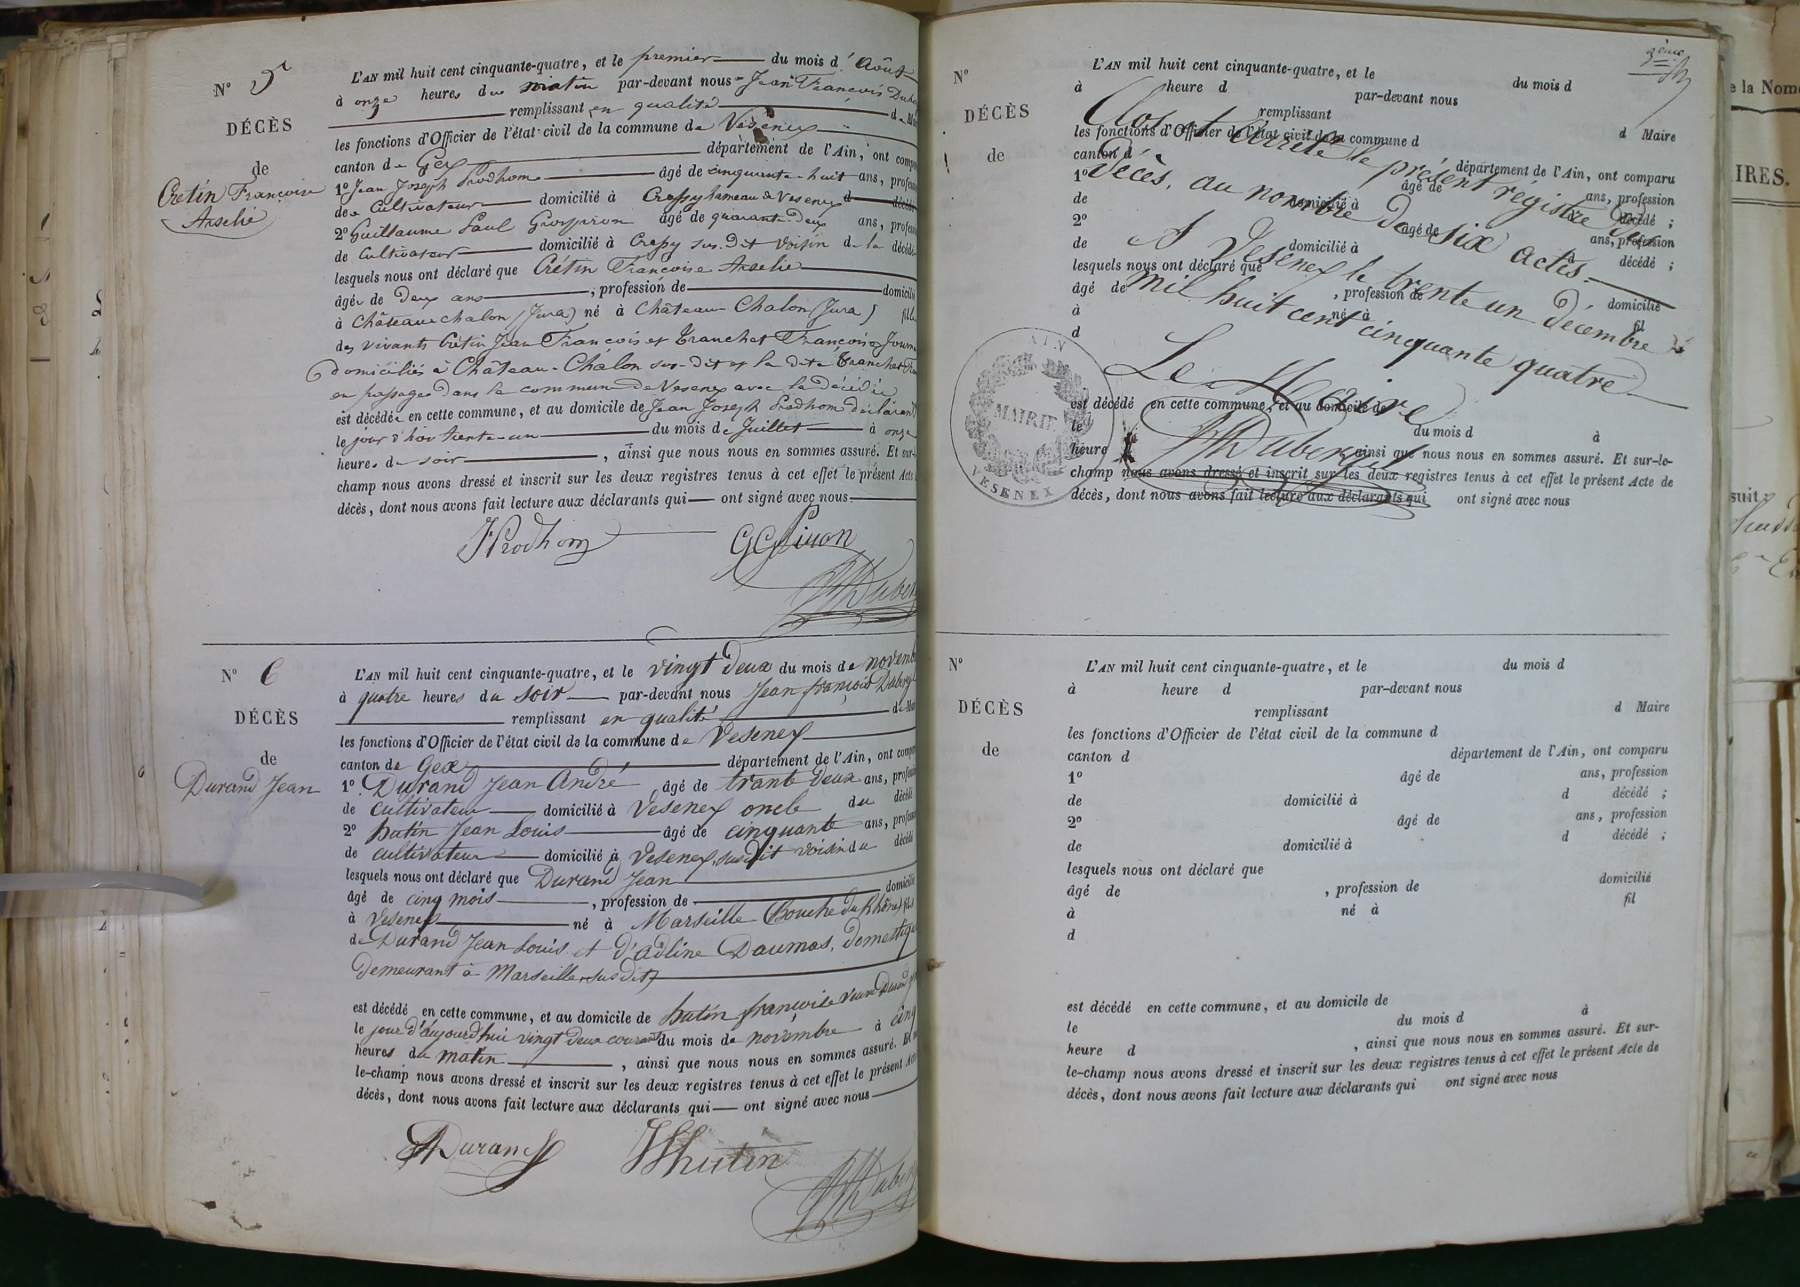 N° 5
DÉCÈS
de
Crétin Françoise
Anselie
L'AN mil huit cent cinquante-quatre, et le premier du mois d'Août
à onze heures du matin par-devant nous Jean François
remplissant en qualité de
les fonctions d'Officier de l'état civil de la commune de Vesenex
canton de Gex département de l'Ain, ont
1° Jean Joseph Prodhom âgé de cinquante-huit ans,
de Cultivateur domicilié à Crepy hameau de Vesenex
2° Guillaume Paul âgé de quarante-deux ans,
de Cultivateur domicilié à Crepy sus-dit voisin de la
lesquels nous ont déclaré que Crétin Françoise
âgée de deux ans, profession de
à Château chalon (Jura) né à Château Chalon (Jura)
des vivants Crétin Jean François et Tranchet Françoise
domiciliés à Château-Châlon sus-dit et la dite Tranchet
en passage dans la commune de Vesenex avec la décédée
est décédée en cette commune, et au domicile de Jean Joseph Prodhom déclarant
le jour d'hier trente-un du mois de Juillet à onze
heures du soir, ainsi que nous nous en sommes assuré. Et sur-
champ nous avons dressé et inscrit sur les deux registres tenus à cet effet le présent Acte
décès, dont nous avons fait lecture aux déclarants qui ont signé avec nous
JProdhom
N° 6
DÉCÈS
de
Durand Jean
L'AN mil huit cent cinquante-quatre, et le vingt deux du mois de
à quatre heures du soir par-devant nous Jean françois
remplissant en qualité de
les fonctions d'Officier de l'état civil de la commune de Vesenex
canton de Gex département de l'Ain, ont
1° Durand Jean André âgé de trante deux ans,
de cultivateur domicilié à Vesenex oncle du
2° hutin Jean Louis âgé de cinquante ans,
de cultivateur domicilié à Vesenex susdit voisin du
lesquels nous ont déclaré que Durand Jean
âgé de cinq mois, profession de domicilié
à Vesenex né à Marseille Bouche du Rhône fils
de Durand Jean Louis et d'adline Daumas,
demeurant à Marseille susdit
est décédé en cette commune, et au domicile de hutin françoise
le jour d'aujourd'hui vingt deux courant du mois de novembre à cinq
heures du matin, ainsi que nous nous en sommes assuré. Et
le-champ nous avons dressé et inscrit sur les deux registres tenus à cet effet le présent
décès, dont nous avons fait lecture aux déclarants qui ont signé avec nous
Durand
hutin
N°
DÉCÈS
de
L'AN mil huit cent cinquante-quatre, et le du mois d
à heure d par-devant nous
remplissant d Maire
les fonctions d'Officier de l'état civil de la commune d
canton d département de l'Ain, ont comparu
1° âgé de ans, profession
de domicilié à décédé ;
2° âgé de ans, profession
de domicilié à décédé ;
lesquels nous ont déclaré que domicilié
âgé de, profession de
à né à fil
d
Clos et arrêté le présent régistre des
Décès, au nombre de six actes
A Vesenex le trente un décembre
mil huit cent cinquante quatre
Le Maire
AIN
MAIRIE
VESENEX
est décédé en cette commune, et au domicile de
le du mois d à
heure d ainsi que nous nous en sommes assuré. Et sur-le-
champ nous avons dressé et inscrit sur les deux registres tenus à cet effet le présent Acte de
décès, dont nous avons fait lecture aux déclarants qui ont signé avec nous
N°
DÉCÈS
de
L'AN mil huit cent cinquante-quatre, et le du mois d
à heure d par-devant nous
remplissant d Maire
les fonctions d'Officier de l'état civil de la commune d
canton d département de l'Ain, ont comparu
1° âgé de ans, profession
de domicilié à d décédé ;
2° âgé de ans, profession
de domicilié à d décédé ;
lesquels nous ont déclaré que domicilié
âgé de, profession de
à né à fil
d
est décédé en cette commune, et au domicile de
le du mois d à
heure d, ainsi que nous nous en sommes assuré. Et sur-
le-champ nous avons dressé et inscrit sur les deux registres tenus à cet effet le présent Acte de
décès, dont nous avons fait lecture aux déclarants qui ont signé avec nous